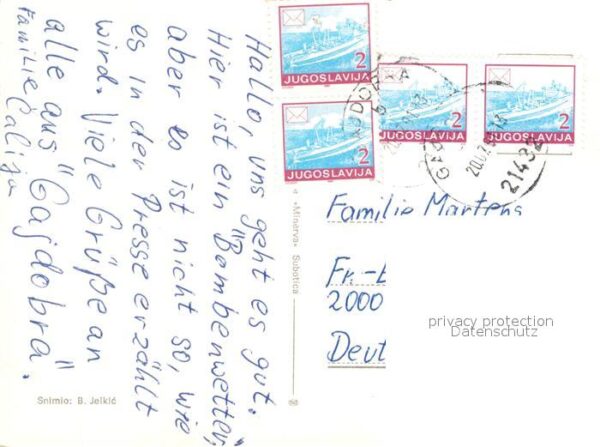 Hallo, uns geht es gut.
Hier ist ein "Bombenwetter,
aber es ist nicht so, wie
es in der Presse erzählt
wird. Viele Grüße an
alle aus "Gajdobra".
Familie Calija
Snimio: B. Jelkić
«Minerva» Subotica
2
JUGOSLAVIJA
2
JUGOSLAVIJA
2
JUGOSLAVIJA
2
JUGOSLAVIJA
21432
Familie Martens
Fr.-
2000
Deut
privacy protection
Datenschutz